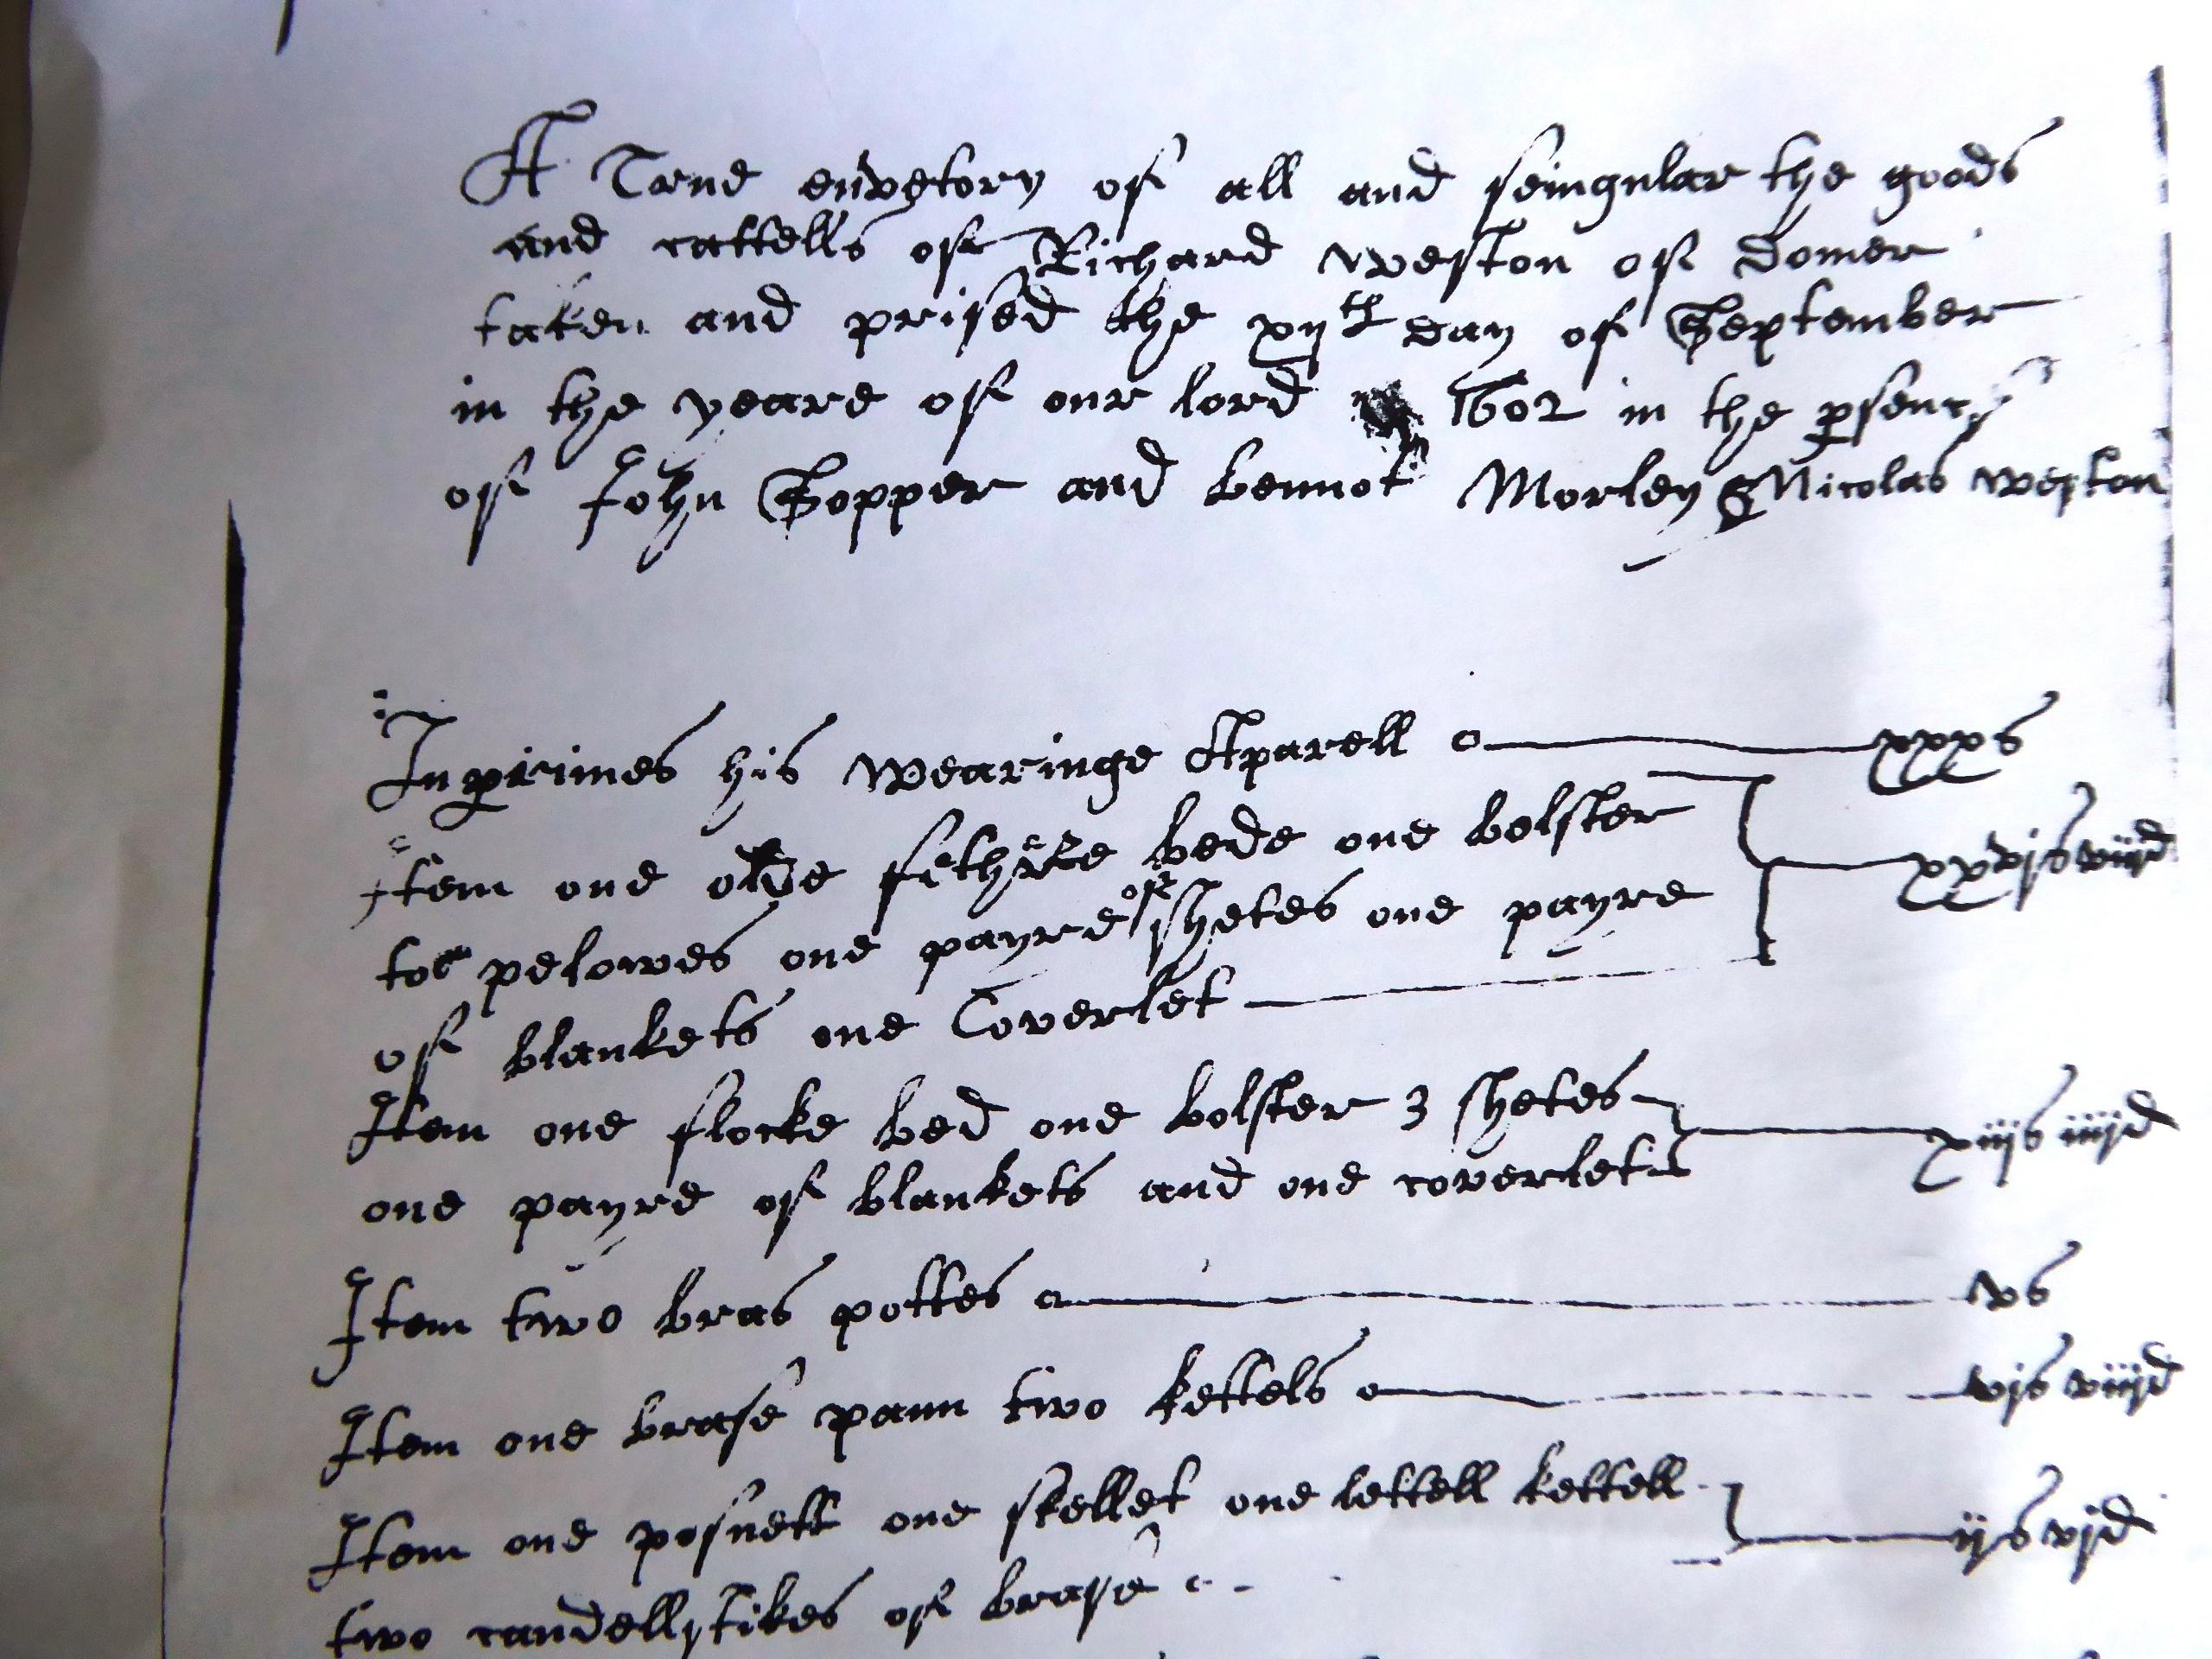 A True enventory of all and seingular the goods
and cattells of Richard weston of Domer
taken and prised the xijth day of September
in the yeare of our lord 1602 in the psence
of John Sopper and bennot Morley & Nicolas weston
Inprimes his wearinge Aparell xxxs
Item one olde fethere bede one bolster
to pelowes one payre of shetes one payre xxvjs viijd
of blankets one Coverlet
Item one flocke bed one bolster 3 shetes xiijs iiijd
one payre of blankets and one coverlet
Item two bras pottes vs
Item one brase pann two kettels vjs viijd
Item one posnett one skellet one lettell kettell ijs vjd
two candellstikes of brase